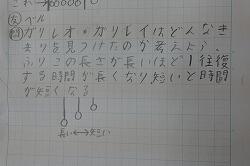 ベル
問 ガリレオ・ガリレイはどんなき
まりを見つけたのか考えよう。
ふりこの長さが長いほど1往復
する時間が長くなり短いと時間
が短くなる
長い←→短い